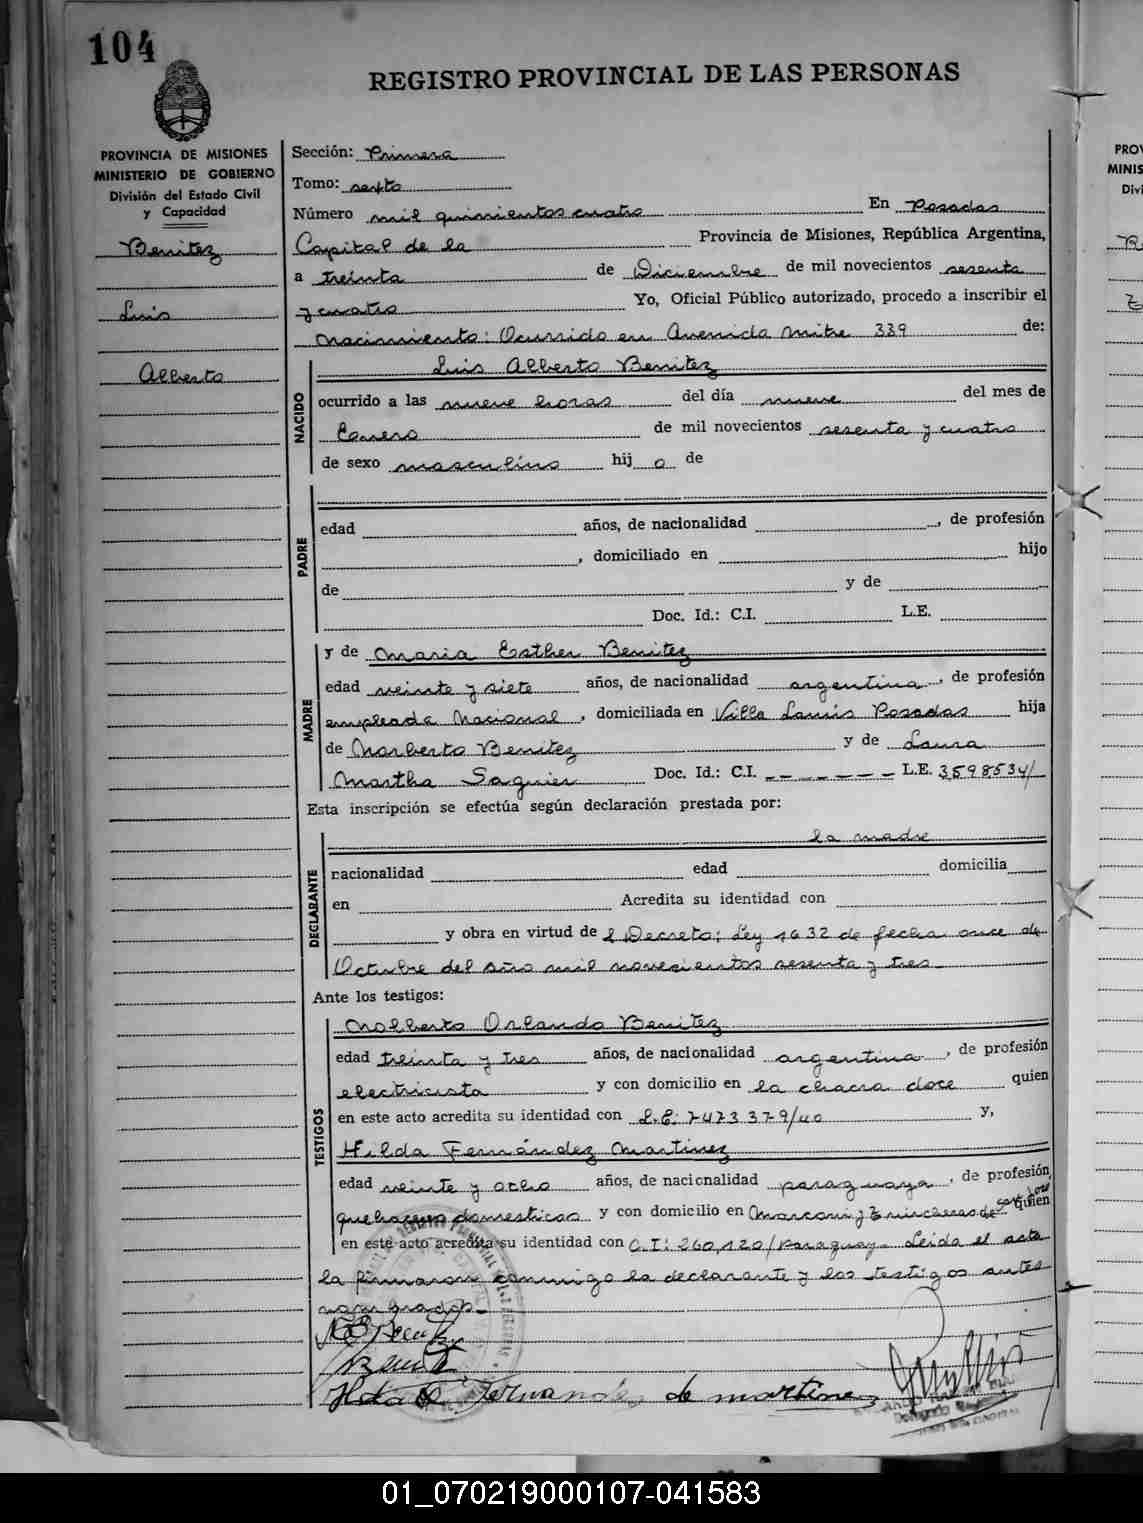 104
REGISTRO PROVINCIAL DE LAS PERSONAS
PROVINCIA DE MISIONES
MINISTERIO DE GOBIERNO
División del Estado Civil
y Capacidad
Benitez
Luis
Alberto
Sección: Primera
Tomo: sexto
Número mil quinientos cuatro En Posadas
Capital de la Provincia de Misiones, República Argentina,
a treinta de Diciembre de mil novecientos sesenta
y cuatro Yo, Oficial Público autorizado, procedo a inscribir el
nacimiento: Ocurrido en Avenida Mitre 339 de:
NACIDO
Luis Alberto Benitez
ocurrido a las nueve horas del día nueve del mes de
Enero de mil novecientos sesenta y cuatro
de sexo masculino hij o de
PADRE
edad años, de nacionalidad , de profesión
, domiciliado en hijo
de y de
Doc. Id.: C.I. L.E.
MADRE
y de Maria Esther Benitez
edad veinte y siete años, de nacionalidad argentina , de profesión
empleada Nacional , domiciliada en Villa Lanús Posadas hija
de Norberto Benitez y de Laura
Martha Saguier Doc. Id.: C.I. - - - - - - - L.E. 3598534/
Esta inscripción se efectúa según declaración prestada por:
DECLARANTE
la madre
nacionalidad edad domicilia
en Acredita su identidad con
y obra en virtud de l Decreto; Ley 1632 de fecha once de
Octubre del año mil novecientos sesenta y tres
Ante los testigos:
TESTIGOS
Nolberto Orlando Benitez
edad treinta y tres años, de nacionalidad argentina , de profesión
electricista y con domicilio en la chacra doce quien
en este acto acredita su identidad con L.E: 7473379/40 y,
Hilda Fernández Martinez
edad veinte y ocho años, de nacionalidad paraguaya , de profesión
quehaceres domesticos y con domicilio en Marconi y Trincheras de San José quien
en este acto acredita su identidad con C.I: 260,120/paraguay- Leida el acta
la firmaron conmigo la declarante y los testigos antes
nombrados-
Benitez
Hilda F. Fernandez de Martinez
01_070219000107-041583
PROV
MINIS
Divi